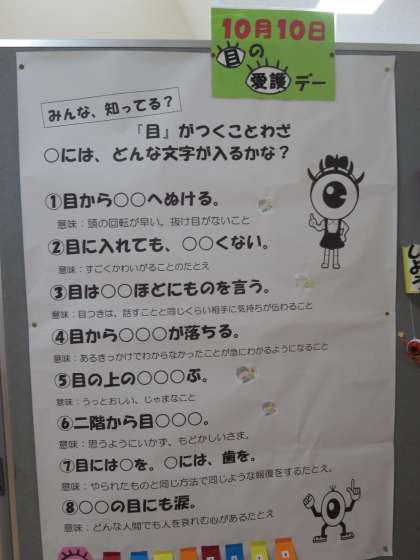 10月10日
目の
愛護デー
みんな、知ってる?
「目」がつくことわざ
○には、どんな文字が入るかな?
①目から○○へぬける。
意味:頭の回転が早い。抜け目がないこと
②目に入れても、○○くない。
意味:すごくかわいがることのたとえ
③目は○○ほどにものを言う。
意味:目つきは、話すことと同じくらい相手に気持ちが伝わること
④目から○○○が落ちる。
意味:あるきっかけでわからなかったことが急にわかるようになること
⑤目の上の○○○ぶ。
意味:うっとおしい、じゃまなこと
⑥二階から目○○○。
意味:思うようにいかず、もどかしいさま。
⑦目には○を。○には、歯を。
意味:やられたものと同じ方法で同じような報復をするたとえ。
⑧○○の目にも涙。
意味:どんな人間でも人を哀れむ心があるたとえ
しよう